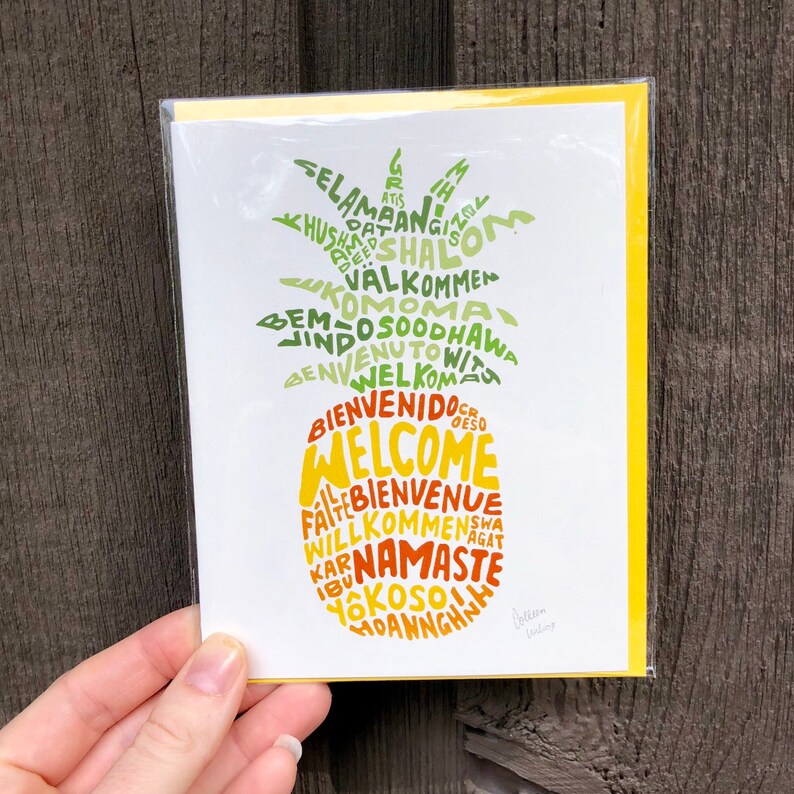 GRATIS
MIHI
SELAMAT
DATANG
GISZEL
KHUSHAMDEED
SHALOM
VÄLKOMMEN
E KOMO MAI
BEM-VINDO
SOO DHAWAW
BENVENUTO
WITAJ
WELKOM
BIENVENIDO
CROESO
WELCOME
FÁILTE
BIENVENUE
WILLKOMMEN
SWAAGAT
KARIBU
NAMASTE
YÔKOSO
HOANNGHNH
Colleen